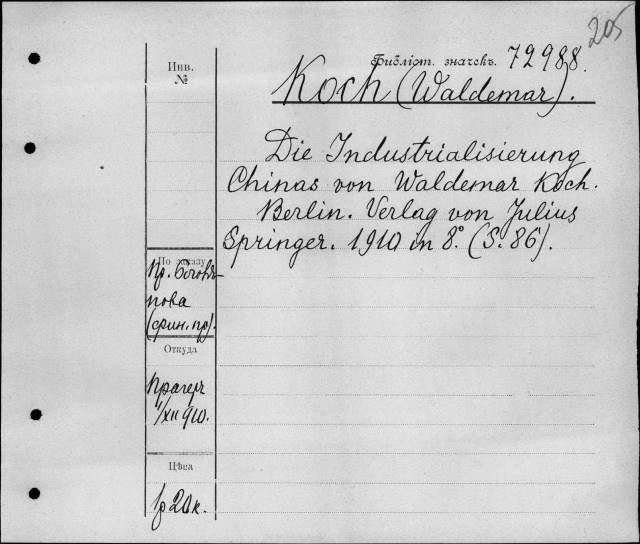 205
Библіот. значекъ. 72988.
Koch (Waldemar).
Die Industrialisierung
Chinas von Waldemar Koch.
Berlin. Verlag von Julius
Springer. 1910 in 8.° (S. 86).
Инв.
№
По заказу
Пр. Боголѣ-
пова
(фин. пр).
Откуда
Прагеръ
1/XII 910.
Цѣна
1 р 20 к.